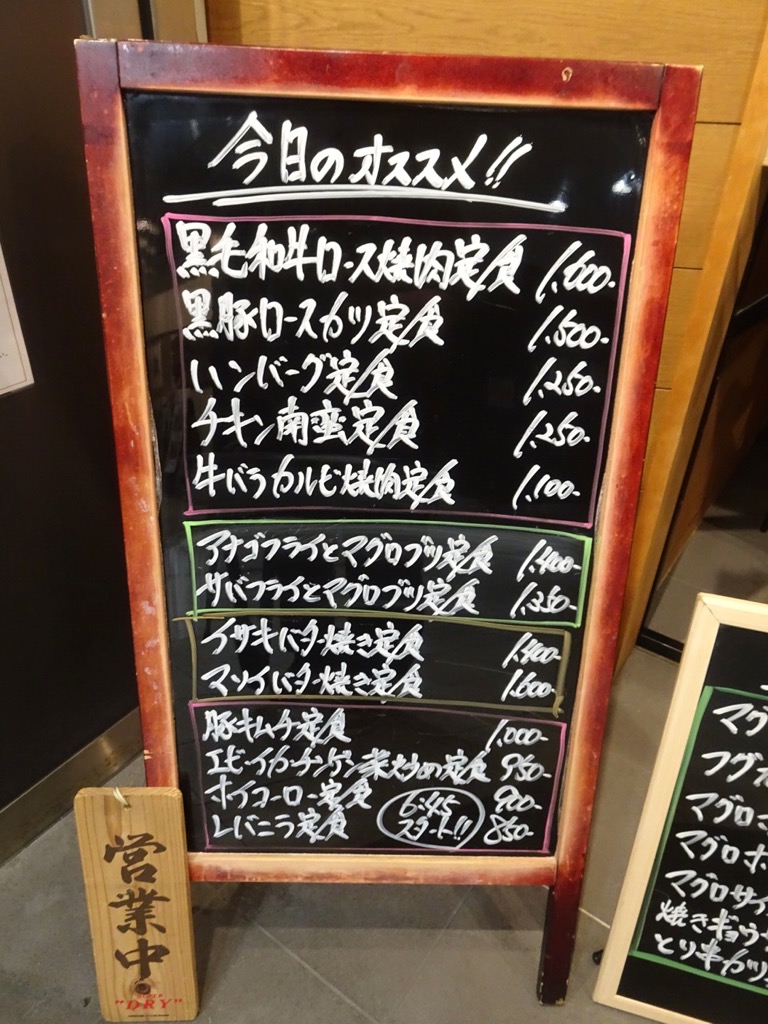 今日のオススメ!!
黒毛和牛ロース焼肉定食 1,600-
黒豚ロースカツ定食 1,500-
ハンバーグ定食 1,250-
チキン南蛮定食 1,250-
牛バラカルビ焼肉定食 1,100-
アナゴフライとマグロブツ定食 1,400-
サバフライとマグロブツ定食 1,350-
イサキバター焼き定食 1,400-
マソイバター焼き定食 1,600-
豚キムチ定食 1,000-
エビイカチンゲン菜炒め定食 950-
ホイコーロー定食 900-
レバニラ定食 850-
6:45
スタート!!
営業中
"DRY"
マグ
フグ
マグロ
マグロホ
マグロサイ
焼きギョウ
とり串カツ